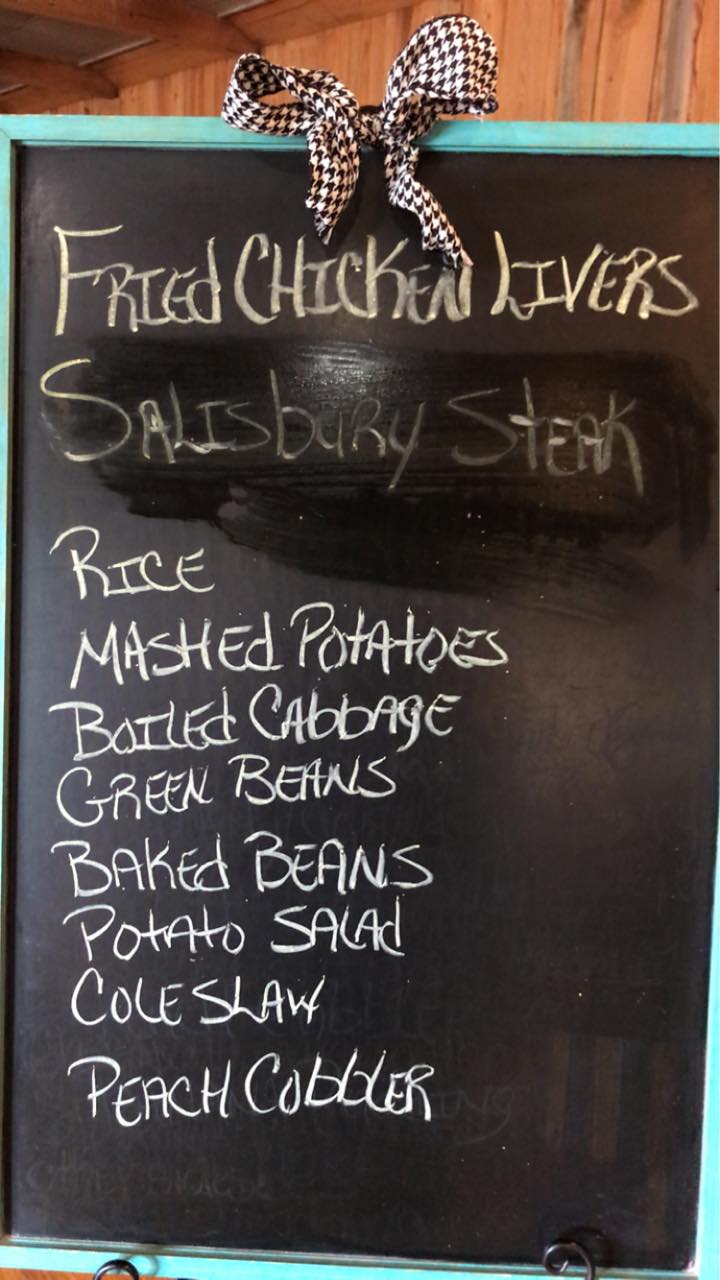 FRIEd CHICKEN LIVERS
SALISbURY STEAK
RICE
MASHEd POtAtOES
BOILEd CAbbAgE
GREEN BEANS
BAKEd BEANS
POtAtO SALAd
COLE SLAW
PEACH CObbLER